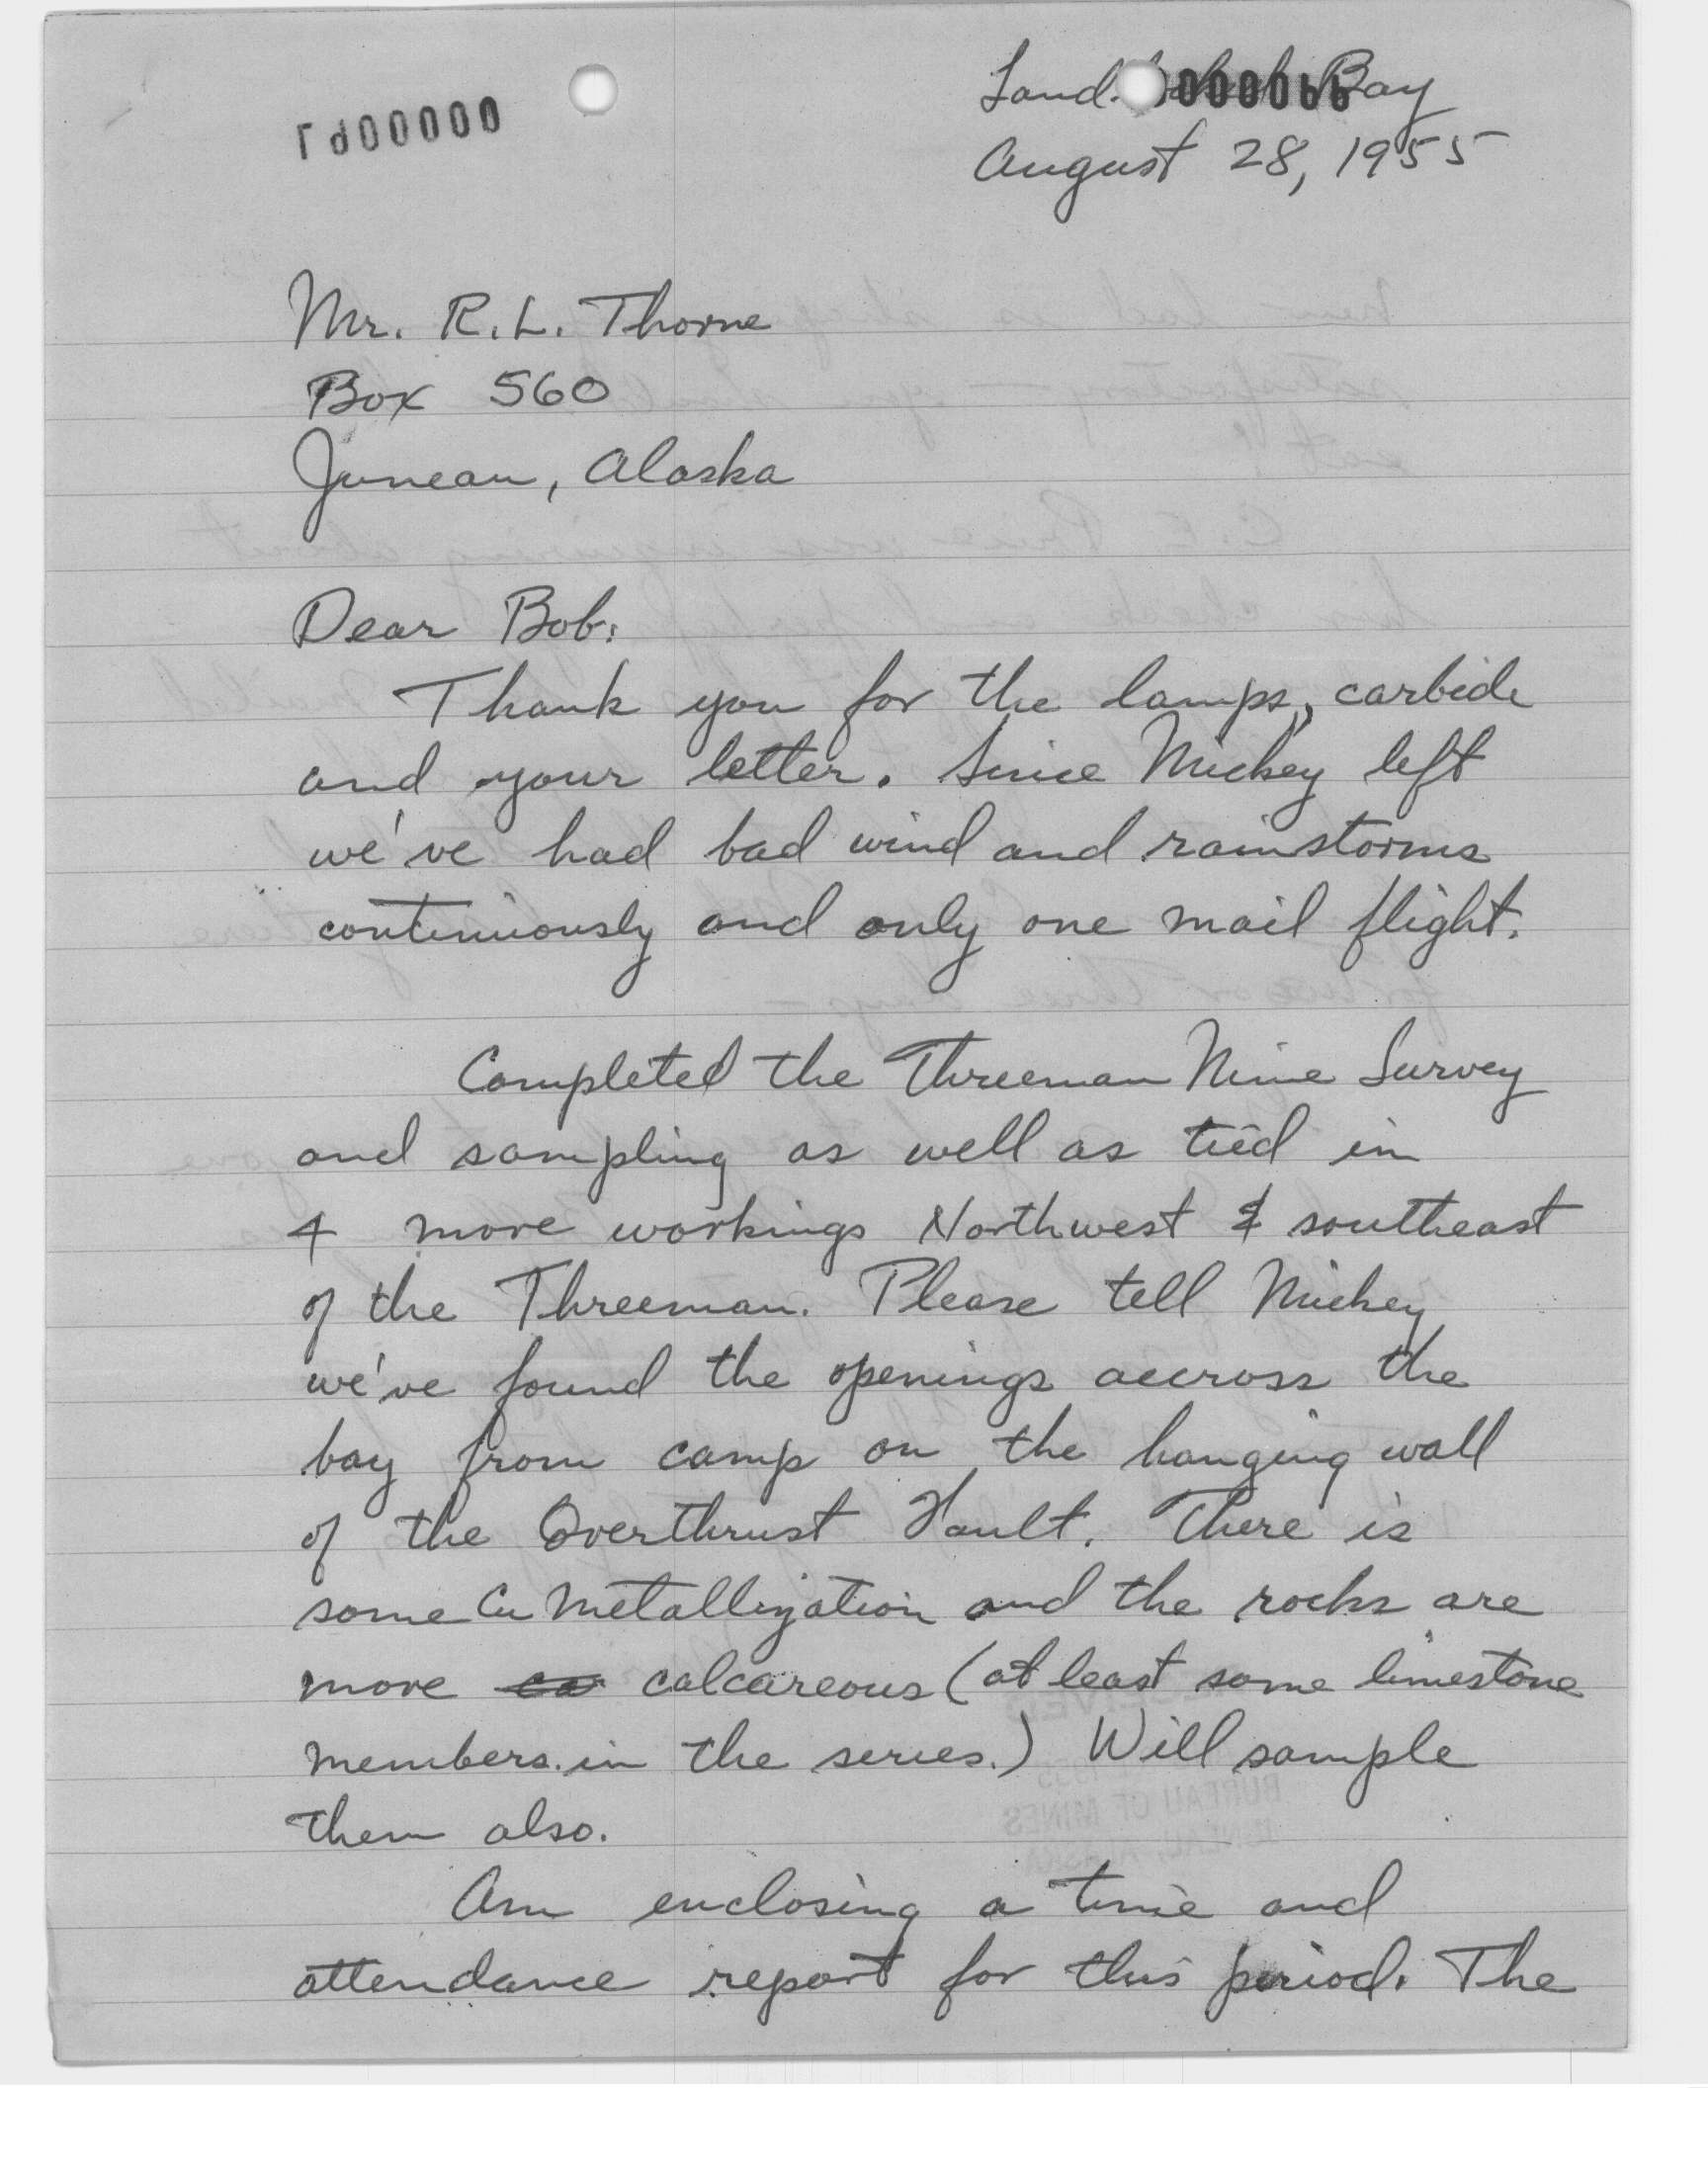 Land. Bay
000066
August 28, 1955
Mr. R.L. Thorne
Box 560
Juneau, Alaska
Dear Bob:
Thank you for the lamps, carbide
and your letter. Since Mickey left
we've had bad wind and rainstorms
continuously and only one mail flight.
Completed the Threeman Mine Survey
and sampling as well as tied in
4 more workings Northwest & southeast
of the Threeman. Please tell Mickey
we've found the openings accross the
bay from camp on the hanging wall
of the Overthrust Fault. There is
some Cu Metallization and the rocks are
more ca calcareous (at least some limestone
members in the series.) Will sample
them also.
Am enclosing a time and
attendance report for this period. The
BUREAU OF MINES